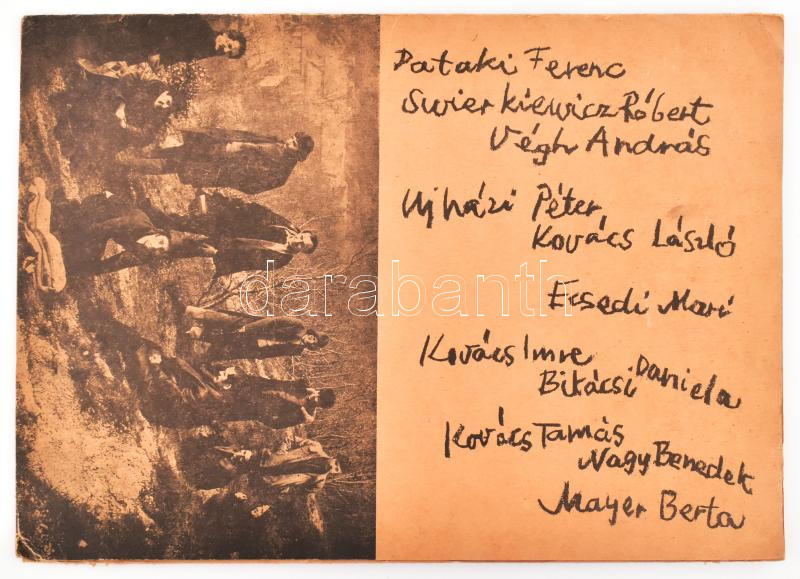 Pataki Ferenc
Swierkiewicz Róbert
Végh András
Ujházi Péter
Kovács László
Ecsedi Mari
Kovács Imre
Bikácsi Daniela
Kovács Tamás
Nagy Benedek
Mayer Berta
darabanth